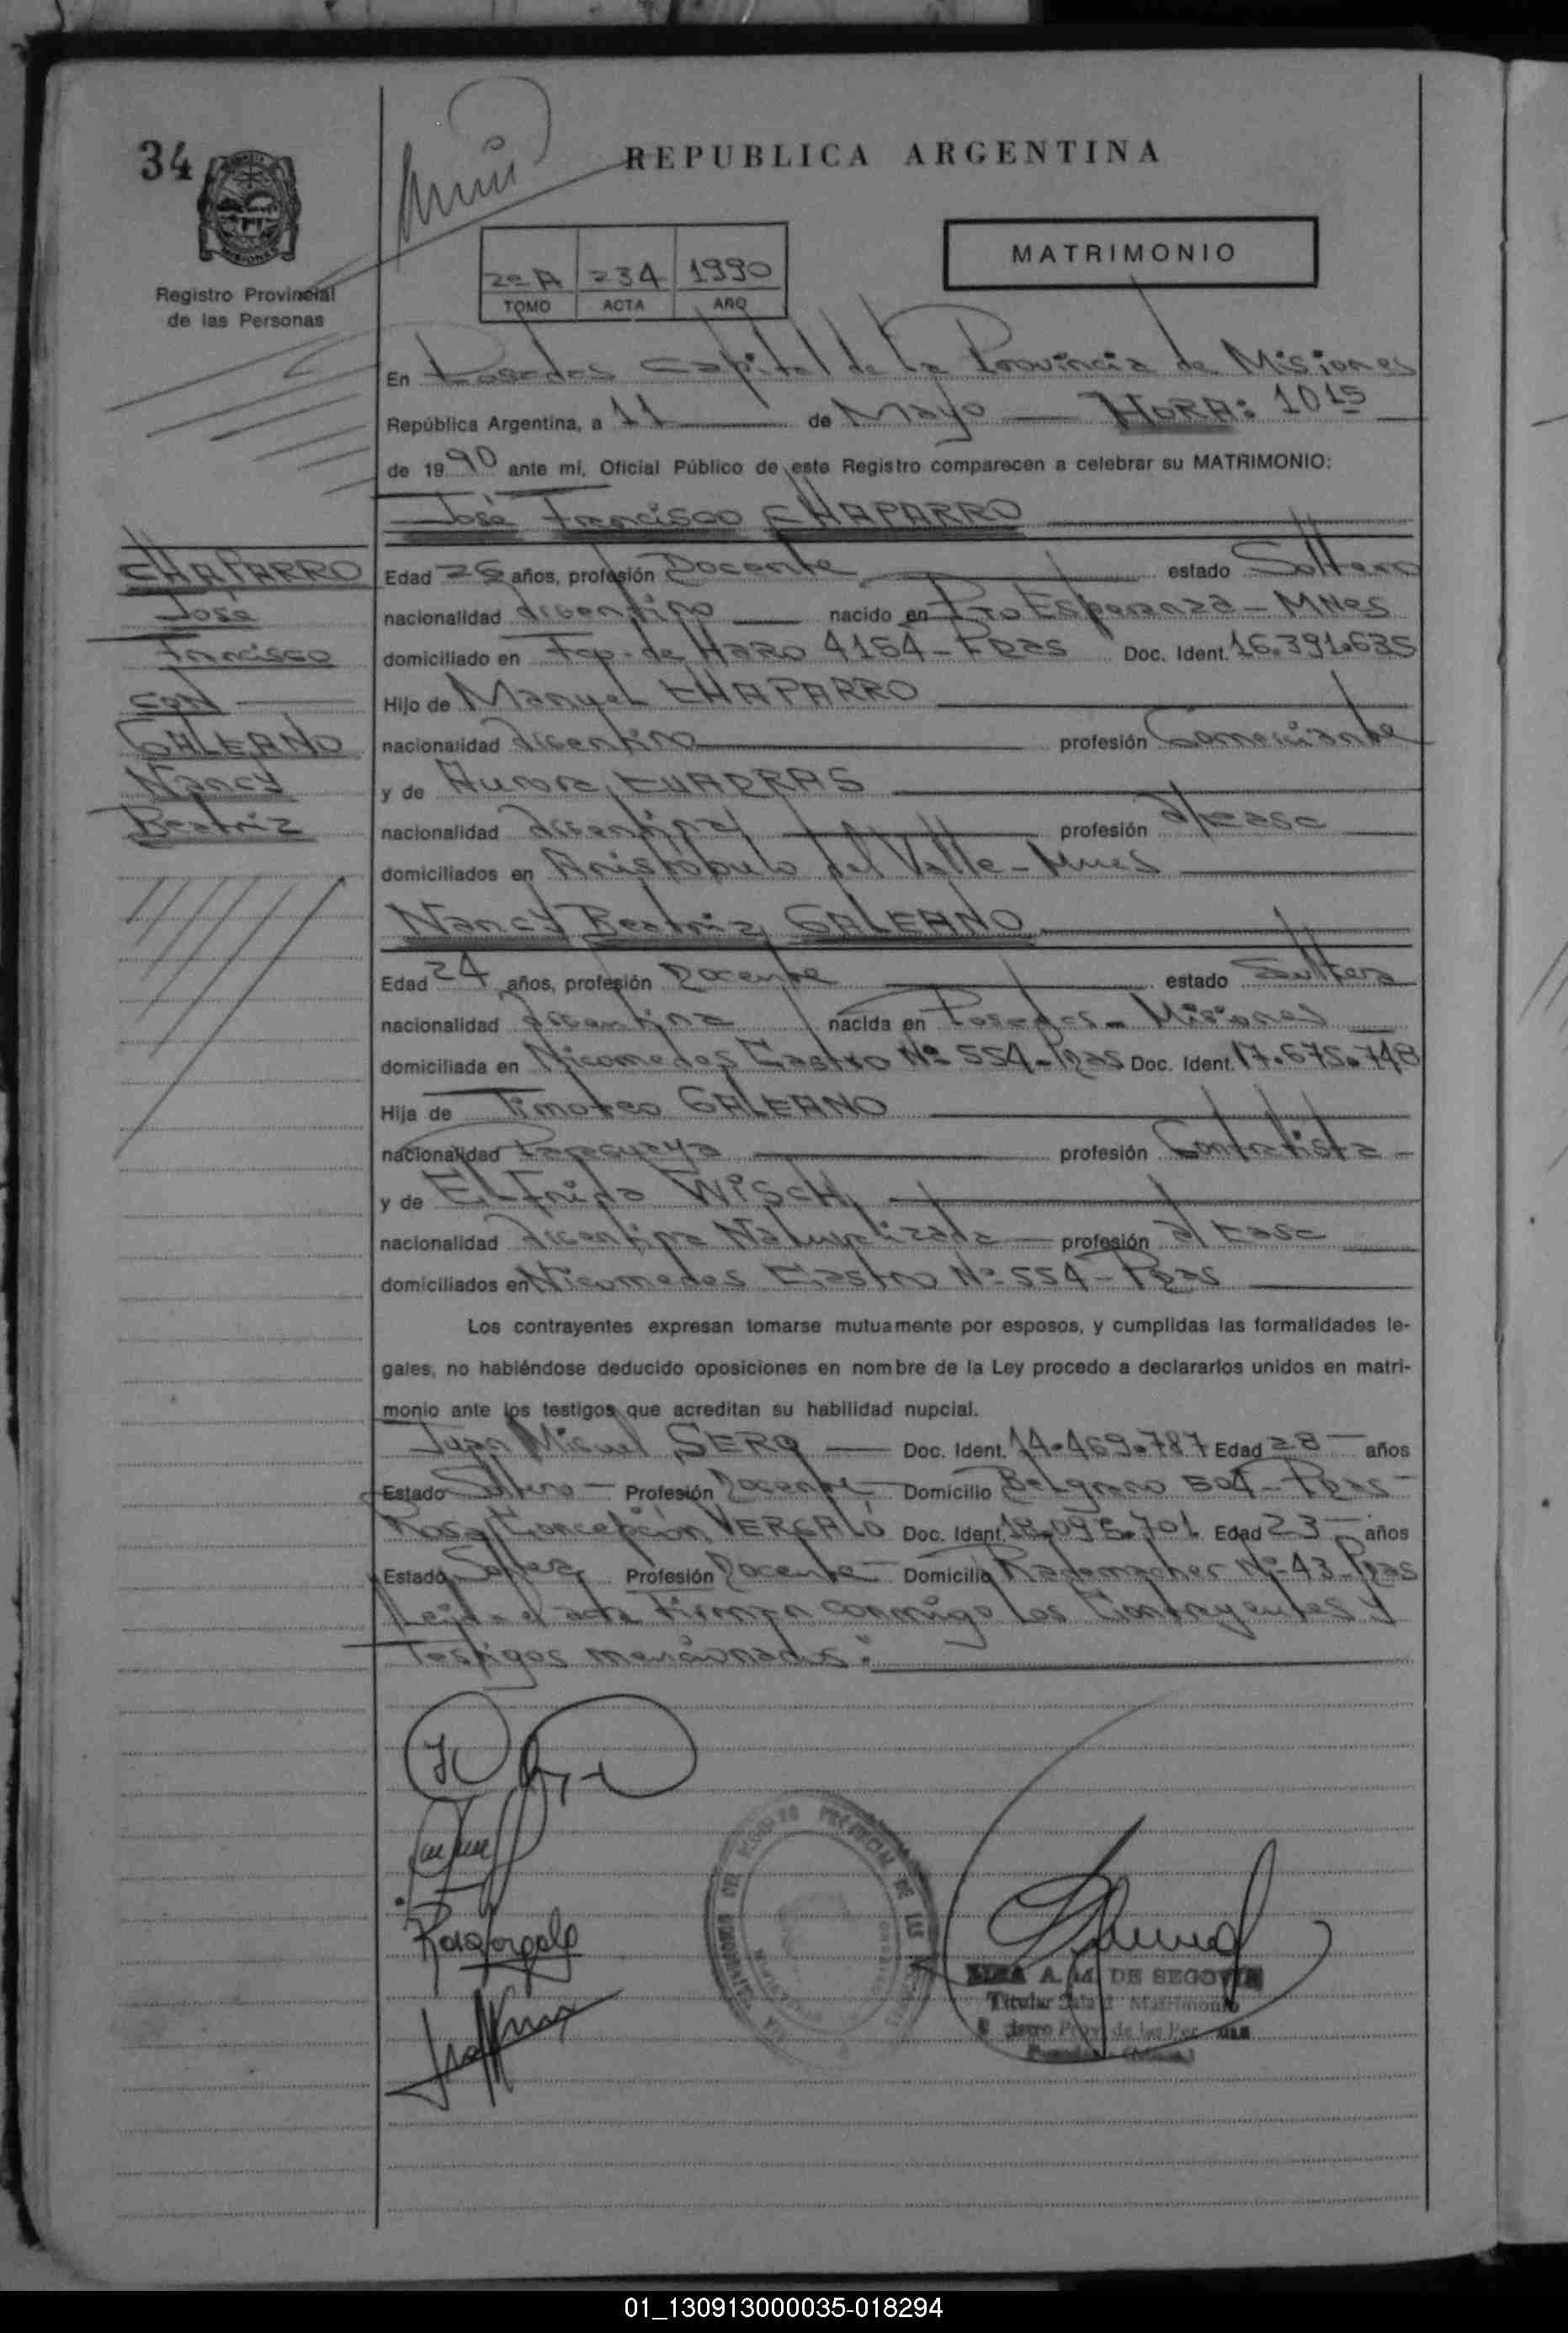 34
REPUBLICA ARGENTINA
MATRIMONIO
Registro Provincial
de las Personas
2º A 234 1990
TOMO ACTA AÑO
En Posadas Capital de la Provincia de Misiones
República Argentina, a 11 de Mayo HORA: 10 15
de 1990 ante mí, Oficial Público de este Registro comparecen a celebrar su MATRIMONIO:
José Francisco CHAPARRO
CHAPARRO
José
Francisco
CON
GALEANO
Nancy
Beatriz
Edad años, profesión Docente estado Soltero
nacionalidad Argentino nacido en Pto Esperanza - MNes
domiciliado en Fco. de HARO 4164 - Pdas Doc. Ident. 16.391.635
Hijo de Manuel CHAPARRO
nacionalidad Argentino profesión Comerciante
y de Aurora CUADRAS
nacionalidad Argentina profesión a/casa
domiciliados en Aristóbulo del Valle - Mnes
Nancy Beatriz GALEANO
Edad 24 años, profesión Docente estado Soltera
nacionalidad Argentina nacida en Posadas - Misiones
domiciliada en Nicomedes Castro Nº 554 - Pdas Doc. Ident. 17.675.748
Hija de Timoteo GALEANO
nacionalidad Paraguaya profesión Contratista
y de Elfrida WISCH
nacionalidad Argentina Naturalizada profesión a/casa
domiciliados en Nicomedes Castro Nº 554 - Pdas
Los contrayentes expresan tomarse mutuamente por esposos, y cumplidas las formalidades le-
gales, no habiéndose deducido oposiciones en nombre de la Ley procedo a declararlos unidos en matri-
monio ante los testigos que acreditan su habilidad nupcial.
Juan Miguel Doc. Ident. 14.469.787 Edad 28 años
Estado Soltero Profesión Docente Domicilio Belgrano 504 - Pdas
Rosa Concepción VERGALÓ Doc. Ident. Edad 23 años
Estado Soltera Profesión Docente Domicilio Rademacher Nº 43 - Pdas
Leída el acta firman conmigo los Contrayentes y
Testigos mencionados.
A. M. DE SEGOVIA
Titular Sala Matrimonio
01_130913000035-018294